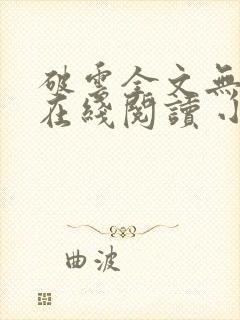 破雲全文無
在綫閱讀 小
曲波